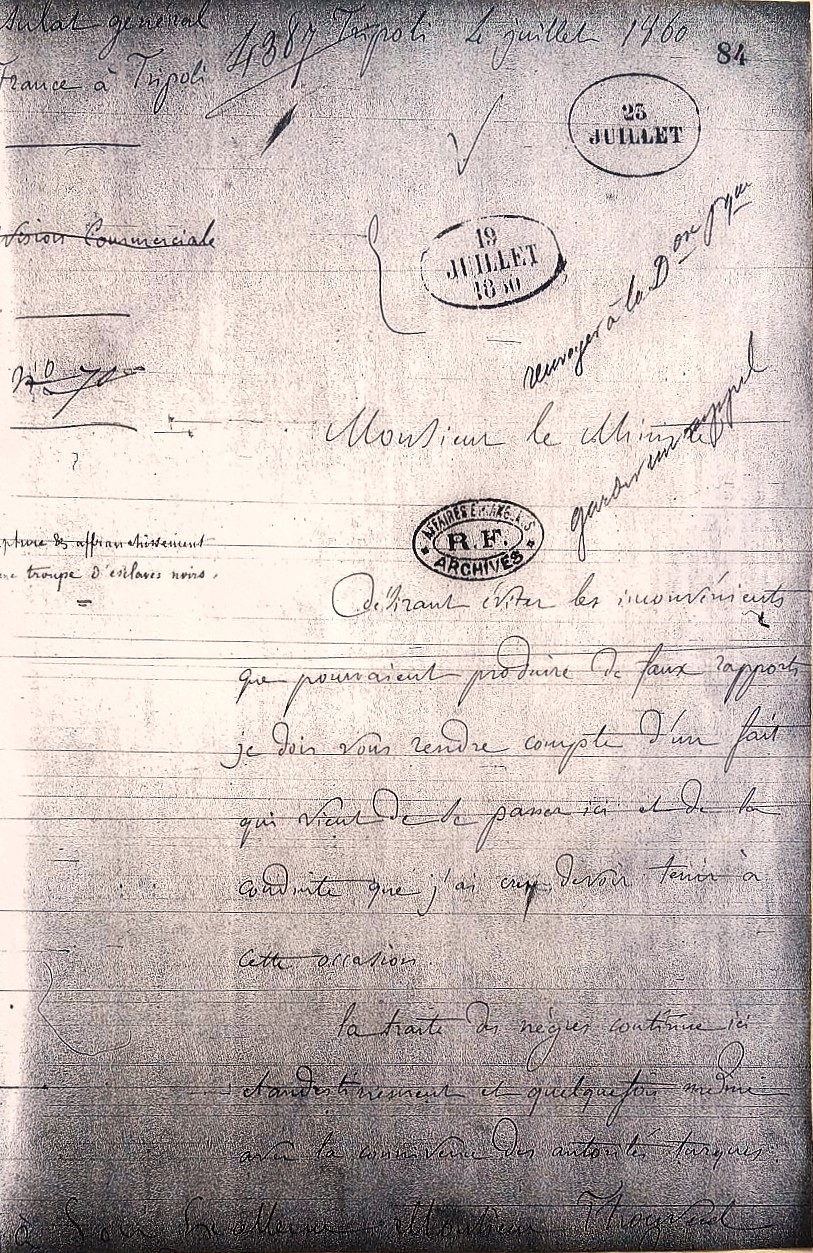 sulat général
4387 Tripoli le juillet 1860
84
France à Tripoli
23
JUILLET
vision Commerciale
19
JUILLET
1860
renvoyer à la Don pque
No 70
Monsieur le Ministre
garder un rappel
AFFAIRES ETRANGERES
R.F.
ARCHIVES
pture & affranchissement
ne troupe d'esclaves noirs.
Désirant éviter les inconvénients
que pourraient produire de faux rapports
je dois vous rendre compte d'un fait
qui vient de se passer ici et de la
conduite que j'ai cru devoir tenir à
cette occasion.
la traite des nègres continue ici
clandestinement et quelquefois même
avec la connivence des autorités turques.
à Son Excellence Monsieur Thouvenel